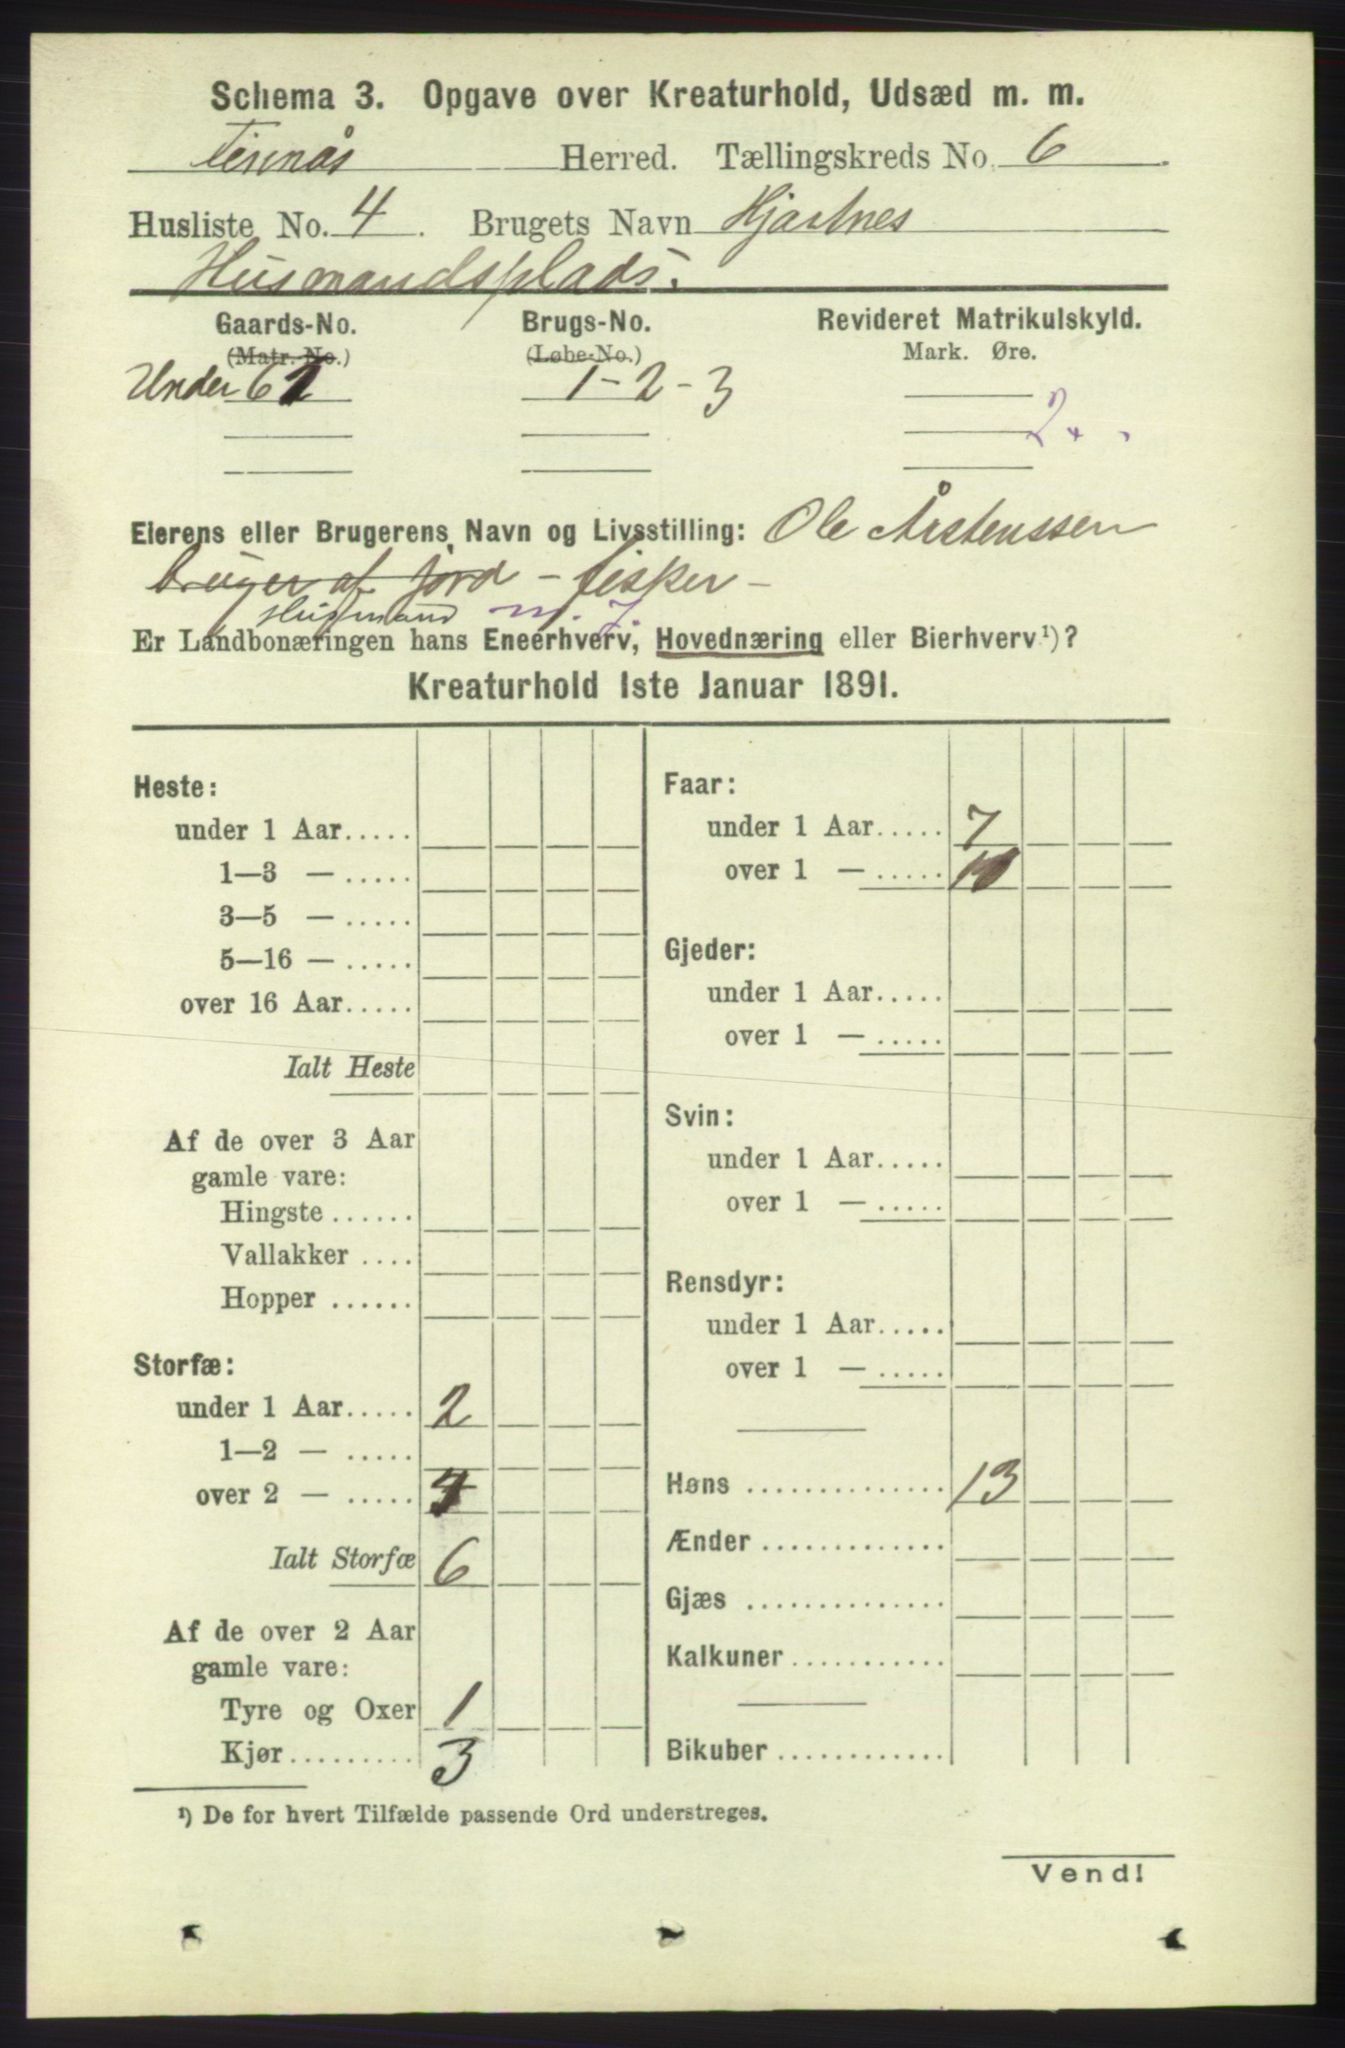 Schema 3. Opgave over Kreaturhold, Udsæd m. m.
Herred. Tællingskreds No. 6.
Husliste No. 4. Brugets Navn Hjartnes
Husmandsplads.
Gaards-No. Brugs-No. Revideret Matrikulskyld.
(Matr. No.) (Løbe-No.) Mark. Øre.
Under 62 1-2-3
2
Eierens eller Brugerens Navn og Livsstilling: Ole Årstenssen
bruger af jord - fisker -
Husmand m. J.
Er Landbonæringen hans Eneerhverv, Hovednæring eller Bierhverv ¹)?
Kreaturhold 1ste Januar 1891.
Heste:
under 1 Aar.....
1—3 — .....
3—5 — .....
5—16 — .....
over 16 Aar.....
Ialt Heste
Af de over 3 Aar
gamle vare:
Hingste ......
Vallakker ....
Hopper ......
Storfæ:
under 1 Aar..... 2
1—2 — .....
over 2 — ..... 4
Ialt Storfæ 6
Af de over 2 Aar
gamle vare:
Tyre og Oxer 1
Kjør......... 3
Faar:
under 1 Aar..... 7
over 1 — ..... 10
Gjeder:
under 1 Aar.....
over 1 — .....
Svin:
under 1 Aar.....
over 1 — .....
Rensdyr:
under 1 Aar.....
over 1 — .....
Høns .............. 13
Ænder .............
Gjæs ..............
Kalkuner ...........
Bikuber ............
¹) De for hvert Tilfælde passende Ord understreges.
Vend!